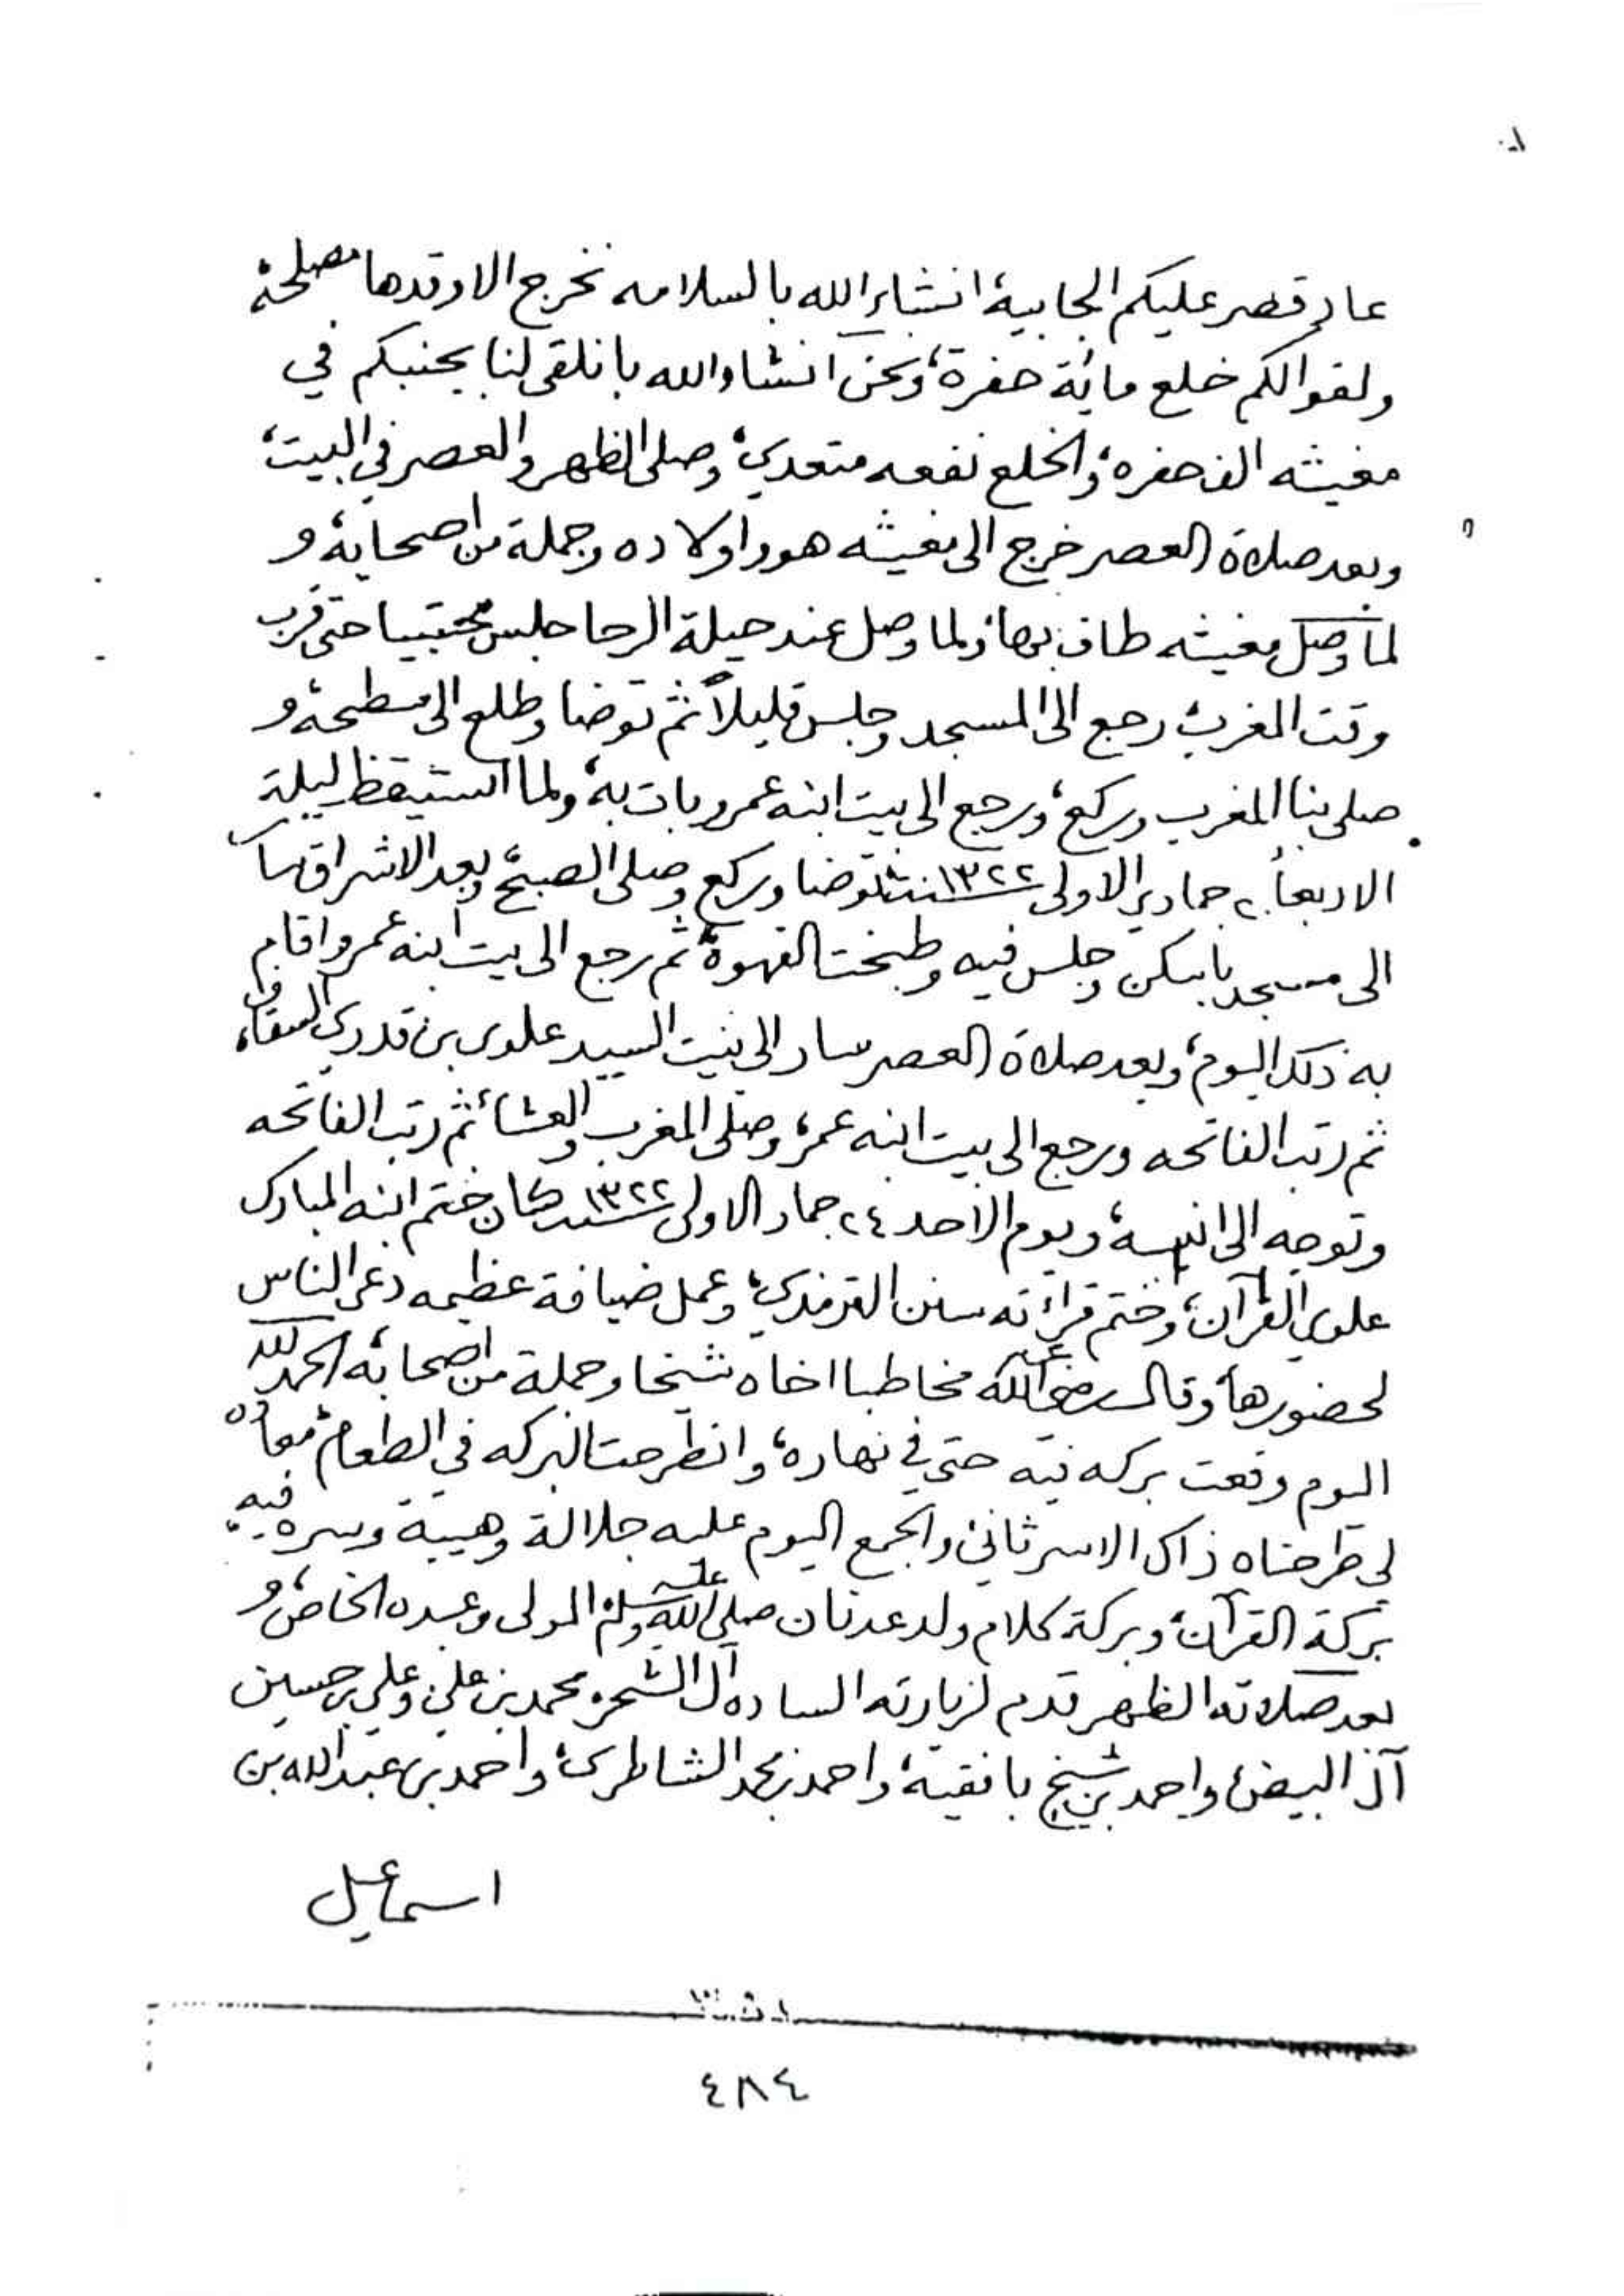 عاد قصر عليكم الجابية، انشاء الله بالسلامه نخرج الا وقدها مصلحة
ولقوا لكم خلع مائة حفرة، ونحن انشاء الله بانلقى لنا بجنبكم في
مغيثه الف حفره، والخلع نفعه متعدي، وصلى الظهر والعصر في البيت،
وبعد صلاة العصر خرج الى مغيثه هو واولاده وجملة من اصحابه، و
لما وصل مغيثه طاف بها، ولما وصل عند حيلة الرحا جلس محتبيا حتى قرب
وقت المغرب، رجع الى المسجد وجلس قليلاً ثم توضا وطلع الى مسطحه، و
صلى بنا المغرب وركع، ورجع الى بيت ابنه عمر وبات به، ولما استيقظ ليلة
الاربعاء ٢٠ جمادى الاولى ١٣٢٢ سنة توضا وركع وصلى الصبح، وبعد الاشراق سار
الى مسجد بابكن وجلس فيه وطبخت القهوة، ثم رجع الى بيت ابنه عمر واقام
به ذلك اليوم، وبعد صلاة العصر سار الى بيت السيد علوى بن قدري السقاف،
ثم رتب الفاتحه ورجع الى بيت ابنه عمر، وصلى المغرب والعشاء، ثم رتب الفاتحه
وتوجه الى انيسه، ويوم الاحد ٢٤ جماد الاولى ١٣٢٢ سنة كان ختم ابنه المبارك
علوي القرآن، وختم قرائته سنن الترمذي، وعمل ضيافة عظيمه دعى الناس
لحضورها، وقال رضي الله عنه مخاطبا اخاه شيخا وجملة من اصحابه، الحمد لله
اليوم وقعت بركه نيّه حتى في نهاره، وانطرحت البركه في الطعام، معاده
لي طرحناه ذاك الا سر ثاني، والجمع اليوم عليه جلالة وهيبة وسره فيه
بركة القرآن، وبركة كلام ولد عدنان صلى الله عليه وسلم المولى وعبده الخاص، و
بعد صلاته الظهر قدم لزيارته الساده آل الشحر، محمد بن علي، وعلي بن حسين
آل البيض، واحمد بن شيخ بافقيه، واحمد بن محمد الشاطرى، واحمد بن عبد الله بن
اسماعيل
٤٨٤